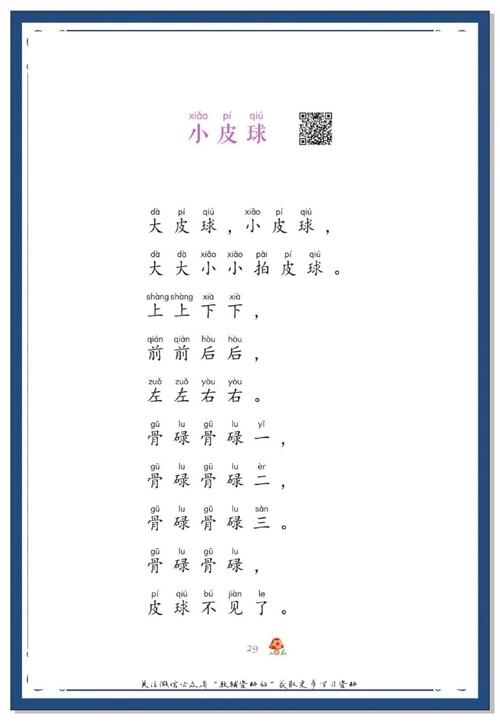 xiǎo pí qiú
小皮球
dà pí qiú xiǎo pí qiú
大皮球，小皮球，
dà dà xiǎo xiǎo pāi pí qiú
大大小小拍皮球。
shàng shàng xià xià
上上下下，
qián qián hòu hòu
前前后后，
zuǒ zuǒ yòu yòu
左左右右。
gū lu gū lu yī
骨碌骨碌一，
gū lu gū lu èr
骨碌骨碌二，
gū lu gū lu sān
骨碌骨碌三。
gū lu gū lu
骨碌骨碌，
pí qiú bú jiàn le
皮球不见了。
29
关注微信公众号“教辅资料站”获取更多学习资料